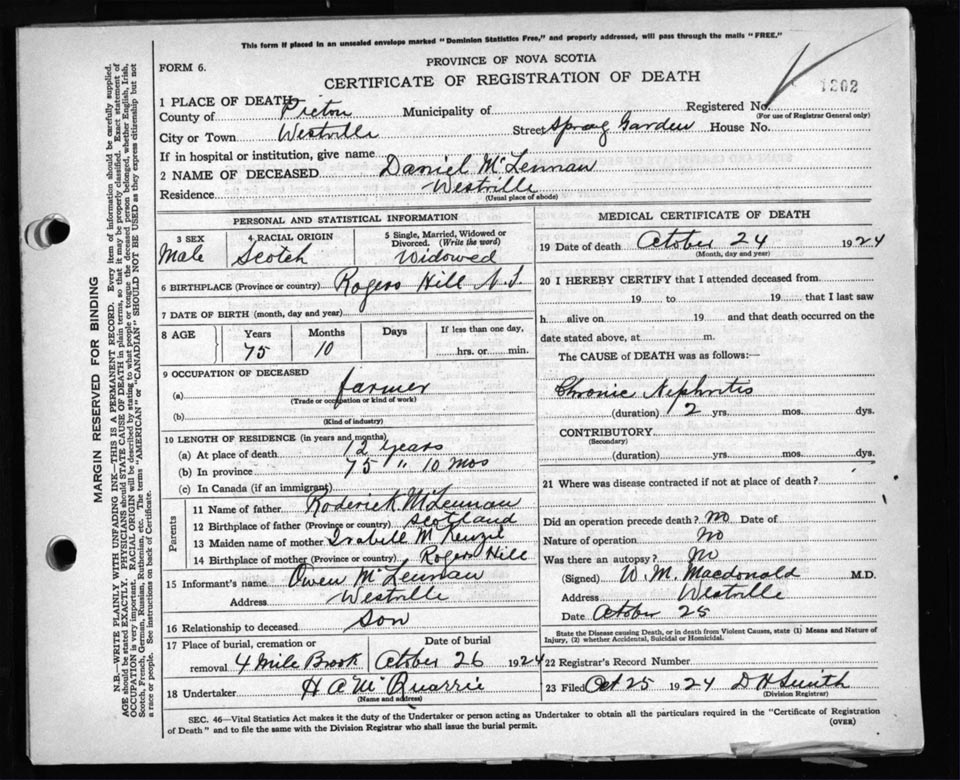 This form if placed in an unsealed envelope marked "Dominion Statistics Free," and properly addressed, will pass through the mails "FREE."
PROVINCE OF NOVA SCOTIA
FORM 6.
CERTIFICATE OF REGISTRATION OF DEATH
1202
1 PLACE OF DEATH
County of Pictou Municipality of Registered No.
(For use of Registrar General only)
City or Town Westville Street Sprag Garden House No.
If in hospital or institution, give name
2 NAME OF DECEASED Daniel McLennan
Residence Westville
(Usual place of abode)
PERSONAL AND STATISTICAL INFORMATION
3 SEX 4 RACIAL ORIGIN 5 Single, Married, Widowed or Divorced. (Write the word)
Male Scotch Widowed
6 BIRTHPLACE (Province or country) Rogers Hill N.S.
7 DATE OF BIRTH (month, day and year)
8 AGE Years Months Days If less than one day,
75 10 hrs. or min.
9 OCCUPATION OF DECEASED
(a) farmer
(Trade or occupation or kind of work)
(b)
(Kind of industry)
10 LENGTH OF RESIDENCE (in years and months)
(a) At place of death 12 years
(b) In province 75 " 10 mos
(c) In Canada (if an immigrant)
Parents
11 Name of father Roderick McLennan
12 Birthplace of father (Province or country) Scotland
13 Maiden name of mother Isabell McKenzie
14 Birthplace of mother (Province or country) Rogers Hill
15 Informant's name Owen McLennan
Address Westville
16 Relationship to deceased Son
17 Place of burial, cremation or removal Date of burial
4 Mile Brook October 26 1924
18 Undertaker H A McQuarrie
(Name and address)
MEDICAL CERTIFICATE OF DEATH
19 Date of death October 24 1924
(Month, day and year)
20 I HEREBY CERTIFY that I attended deceased from
19 to 19 that I last saw
h alive on 19 and that death occurred on the
date stated above, at m.
The CAUSE of DEATH was as follows:—
Chronic Nephritis
(duration) 2 yrs. mos. dys.
CONTRIBUTORY
(Secondary)
(duration) yrs. mos. dys.
21 Where was disease contracted if not at place of death?
Did an operation precede death? No Date of
Nature of operation No
Was there an autopsy? No
(Signed) W. M. Macdonald M.D.
Address Westville
Date October 25
State the Disease causing Death, or in death from Violent Causes, state (1) Means and Nature of
Injury, (2) whether Accidental, Suicidal or Homicidal.
22 Registrar's Record Number
23 Filed Oct 25 1924 D H Smith
(Division Registrar)
SEC. 46—Vital Statistics Act makes it the duty of the Undertaker or person acting as Undertaker to obtain all the particulars required in the "Certificate of Registration
of Death" and to file the same with the Division Registrar who shall issue the burial permit.
(OVER)
MARGIN RESERVED FOR BINDING
N.B.—WRITE PLAINLY WITH UNFADING INK—THIS IS A PERMANENT RECORD. Every item of information should be carefully supplied.
AGE should be stated EXACTLY. PHYSICIANS should STATE CAUSE OF DEATH in plain terms, so that it may be properly classified. Exact statement of
OCCUPATION is very important. RACIAL ORIGIN will be described by stating to what people or tongue the deceased person belonged, whether English, Irish,
Scotch, French, German, Russian, Ruthenian, etc. The terms "AMERICAN" or "CANADIAN" SHOULD NOT BE USED as they express citizenship but not
a race or people. See instructions on back of Certificate.